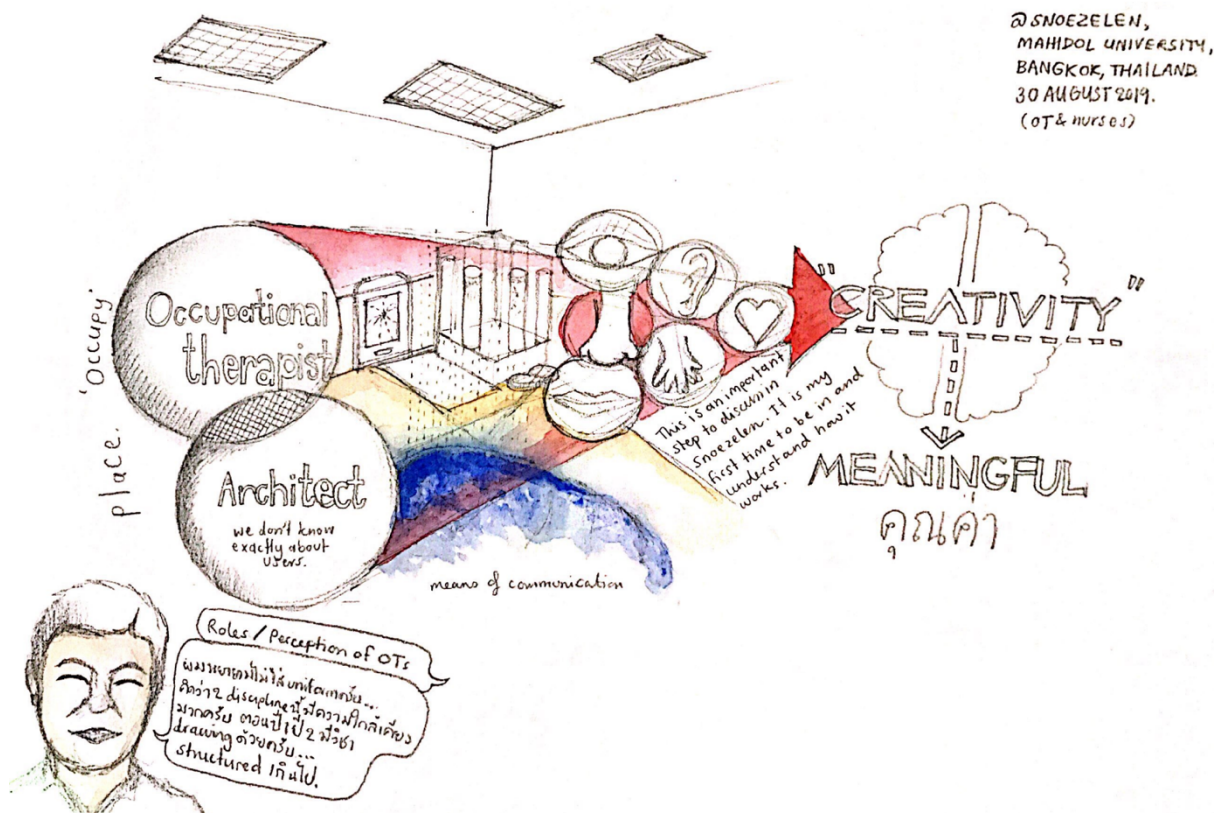 @ SNOEZELEN,
MAHIDOL UNIVERSITY,
BANGKOK, THAILAND.
30 AUGUST 2019.
(OT & nurses)
place. 'Occupy'
Occupational
therapist
Architect
we don't know
exactly about
users.
means of communication
This is an important
step to discuss in
Snoezelen. It is my
first time to be in and
understand how it
works.
"CREATIVITY"
MEANINGFUL
คุณค่า
Roles / Perception of OTs
ผมพยายามไม่ใส่ uniform ครับ...
คิดว่า 2 discipline นี้มีความใกล้เคียง
มากครับ ตอนปี 1 ปี 2 มีวิชา
drawing ด้วยครับ...
structured เกินไป.